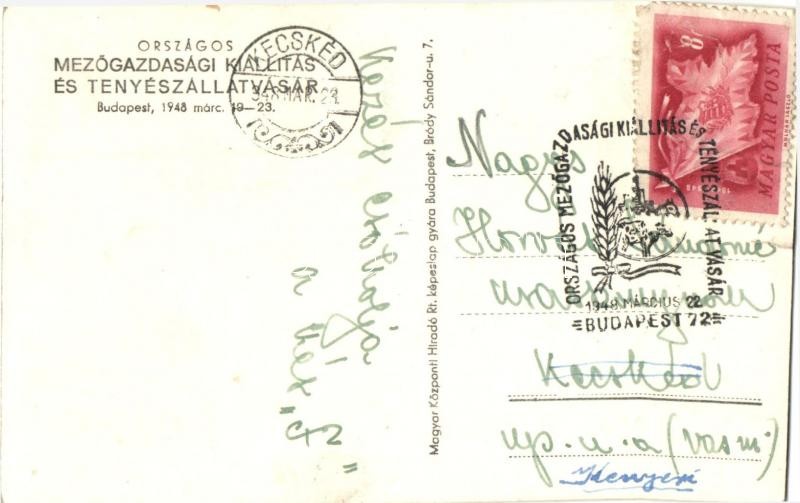 ORSZÁGOS
MEZŐGAZDASÁGI KIÁLLÍTÁS
ÉS TENYÉSZÁLLATVÁSÁR
Budapest, 1948 márc. 19—23.
KECSKÉD
948 MÁR. 24.
Kezét csókolja
a két „F”
Magyar Központi Híradó Rt. képeslap gyára Budapest, Bródy Sándor-u. 7.
8f
MAGYAR POSTA
ORSZÁGOS MEZŐGAZDASÁGI KIÁLLITÁS ÉS TENYÉSZÁLLATVÁSÁR
1948 MÁRCIUS 22
=BUDAPEST 72=
Nagys
Horváth Sándorné
Kecskéd
up. u. a (vas m.)
Kenyeri